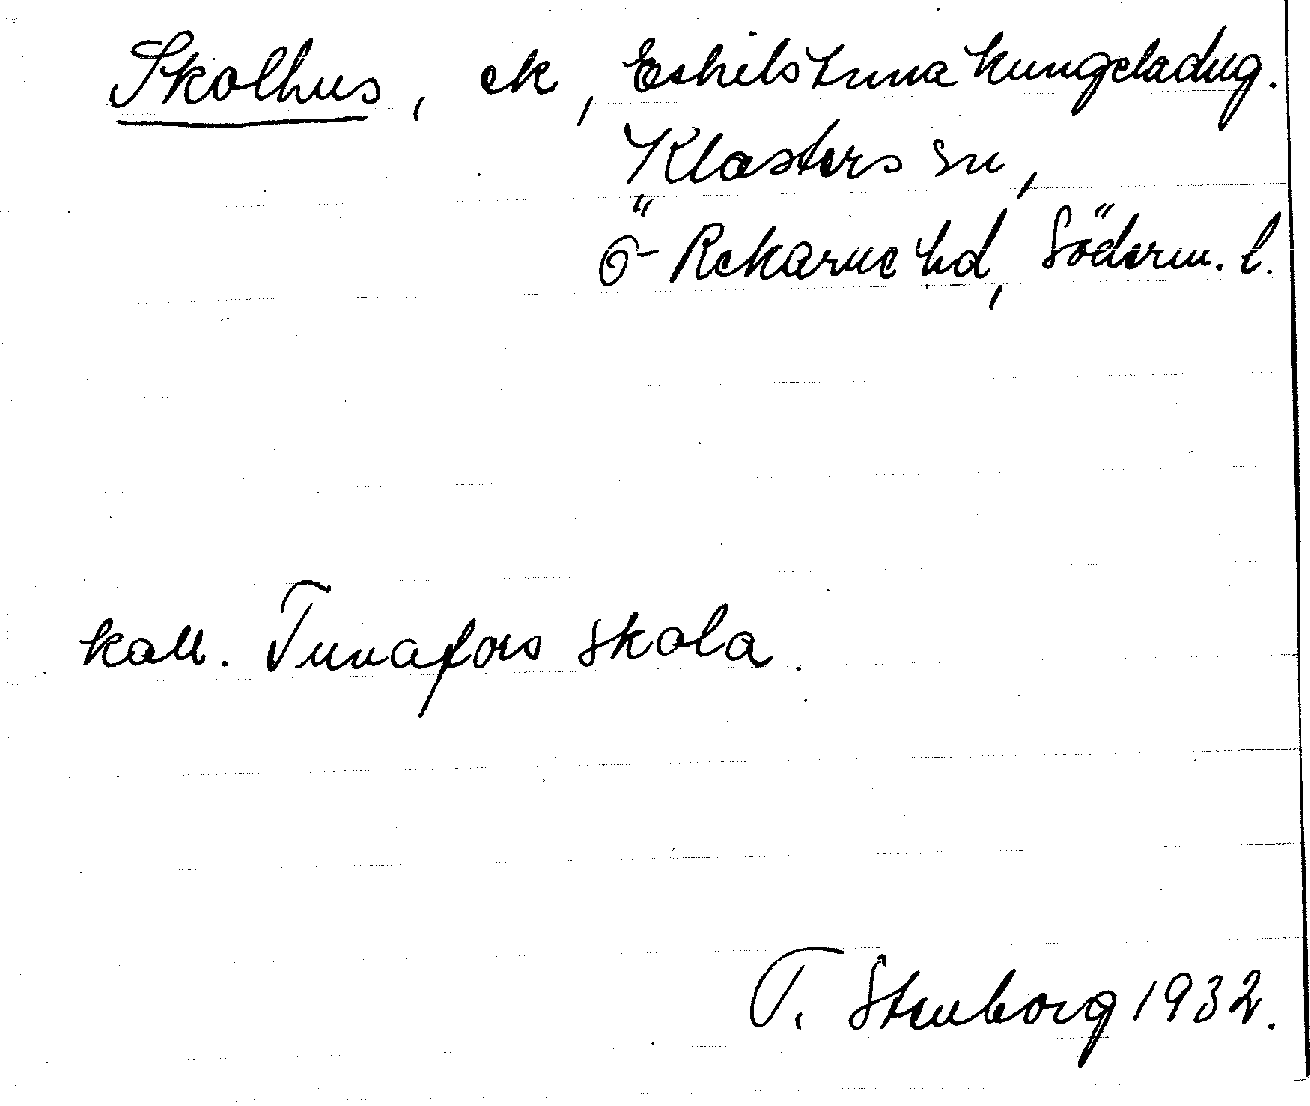 Skolhus, ek, Eskilstuna kungsladug.
Klosters sn,
Ö Rekarne hd, Söderm. l.
kall. Tunafors skola.
T. Stenborg 1932.